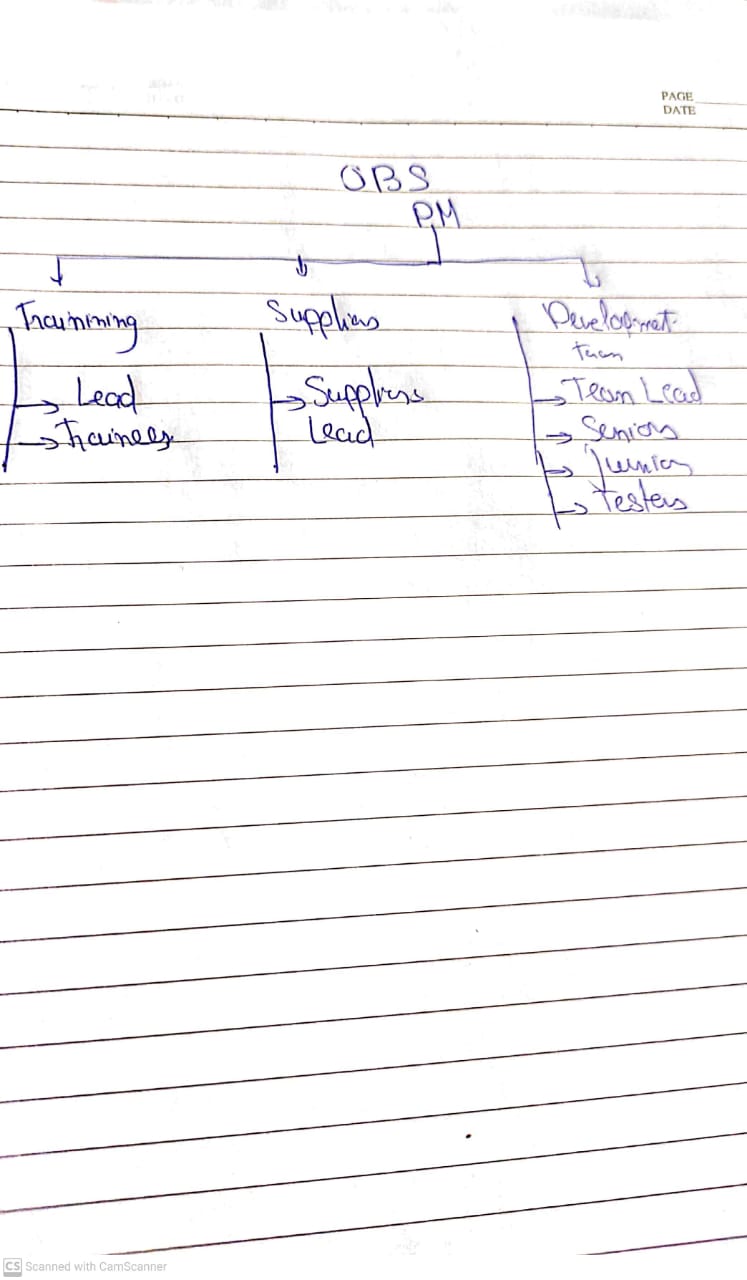 PAGE
DATE
OBS
PM
Trainining
Lead
Trainees
Suppliers
Suppliers
Lead
Developmet
Team
Team Lead
Seniors
Junior
Testers
CS Scanned with CamScanner